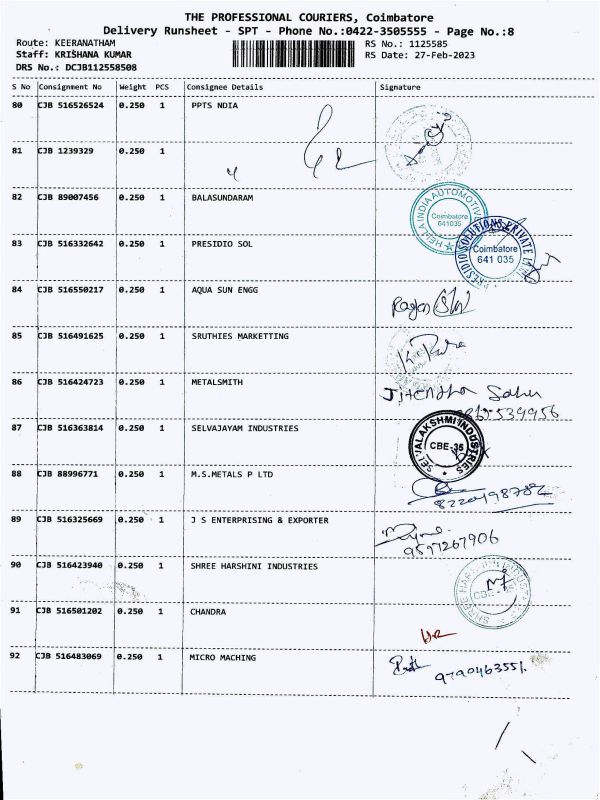 THE PROFESSIONAL COURIERS, Coimbatore
Delivery Runsheet - SPT - Phone No.:0422-3505555 - Page No.:8
Route: KEERANATHAM RS No.: 1125585
Staff: KRISHANA KUMAR RS Date: 27-Feb-2023
DRS No.: DCJB112558508
S No Consignment No Weight PCS Consignee Details Signature
80 CJB 516526524 0.250 1 PPTS NDIA
81 CJB 1239329 0.250 1
82 CJB 89007456 0.250 1 BALASUNDARAM
HELLA INDIA AUTOMOTIVE
Coimbatore
641035
83 CJB 516332642 0.250 1 PRESIDIO SOL
PRESIDIO SOLUTIONS PRIVATE
Coimbatore
641 035
84 CJB 516550217 0.250 1 AQUA SUN ENGG
85 CJB 516491625 0.250 1 SRUTHIES MARKETTING
86 CJB 516424723 0.250 1 METALSMITH
Jitendra Sahu
87 CJB 516363814 0.250 1 SELVAJAYAM INDUSTRIES
SELVALAKSHMI INDUSTRIES
CBE-35
88 CJB 88996771 0.250 1 M.S.METALS P LTD
8220498782
89 CJB 516325669 0.250 1 J S ENTERPRISING & EXPORTER
9597267906
90 CJB 516423940 0.250 1 SHREE HARSHINI INDUSTRIES
91 CJB 516501202 0.250 1 CHANDRA
92 CJB 516483069 0.250 1 MICRO MACHING
9790463551